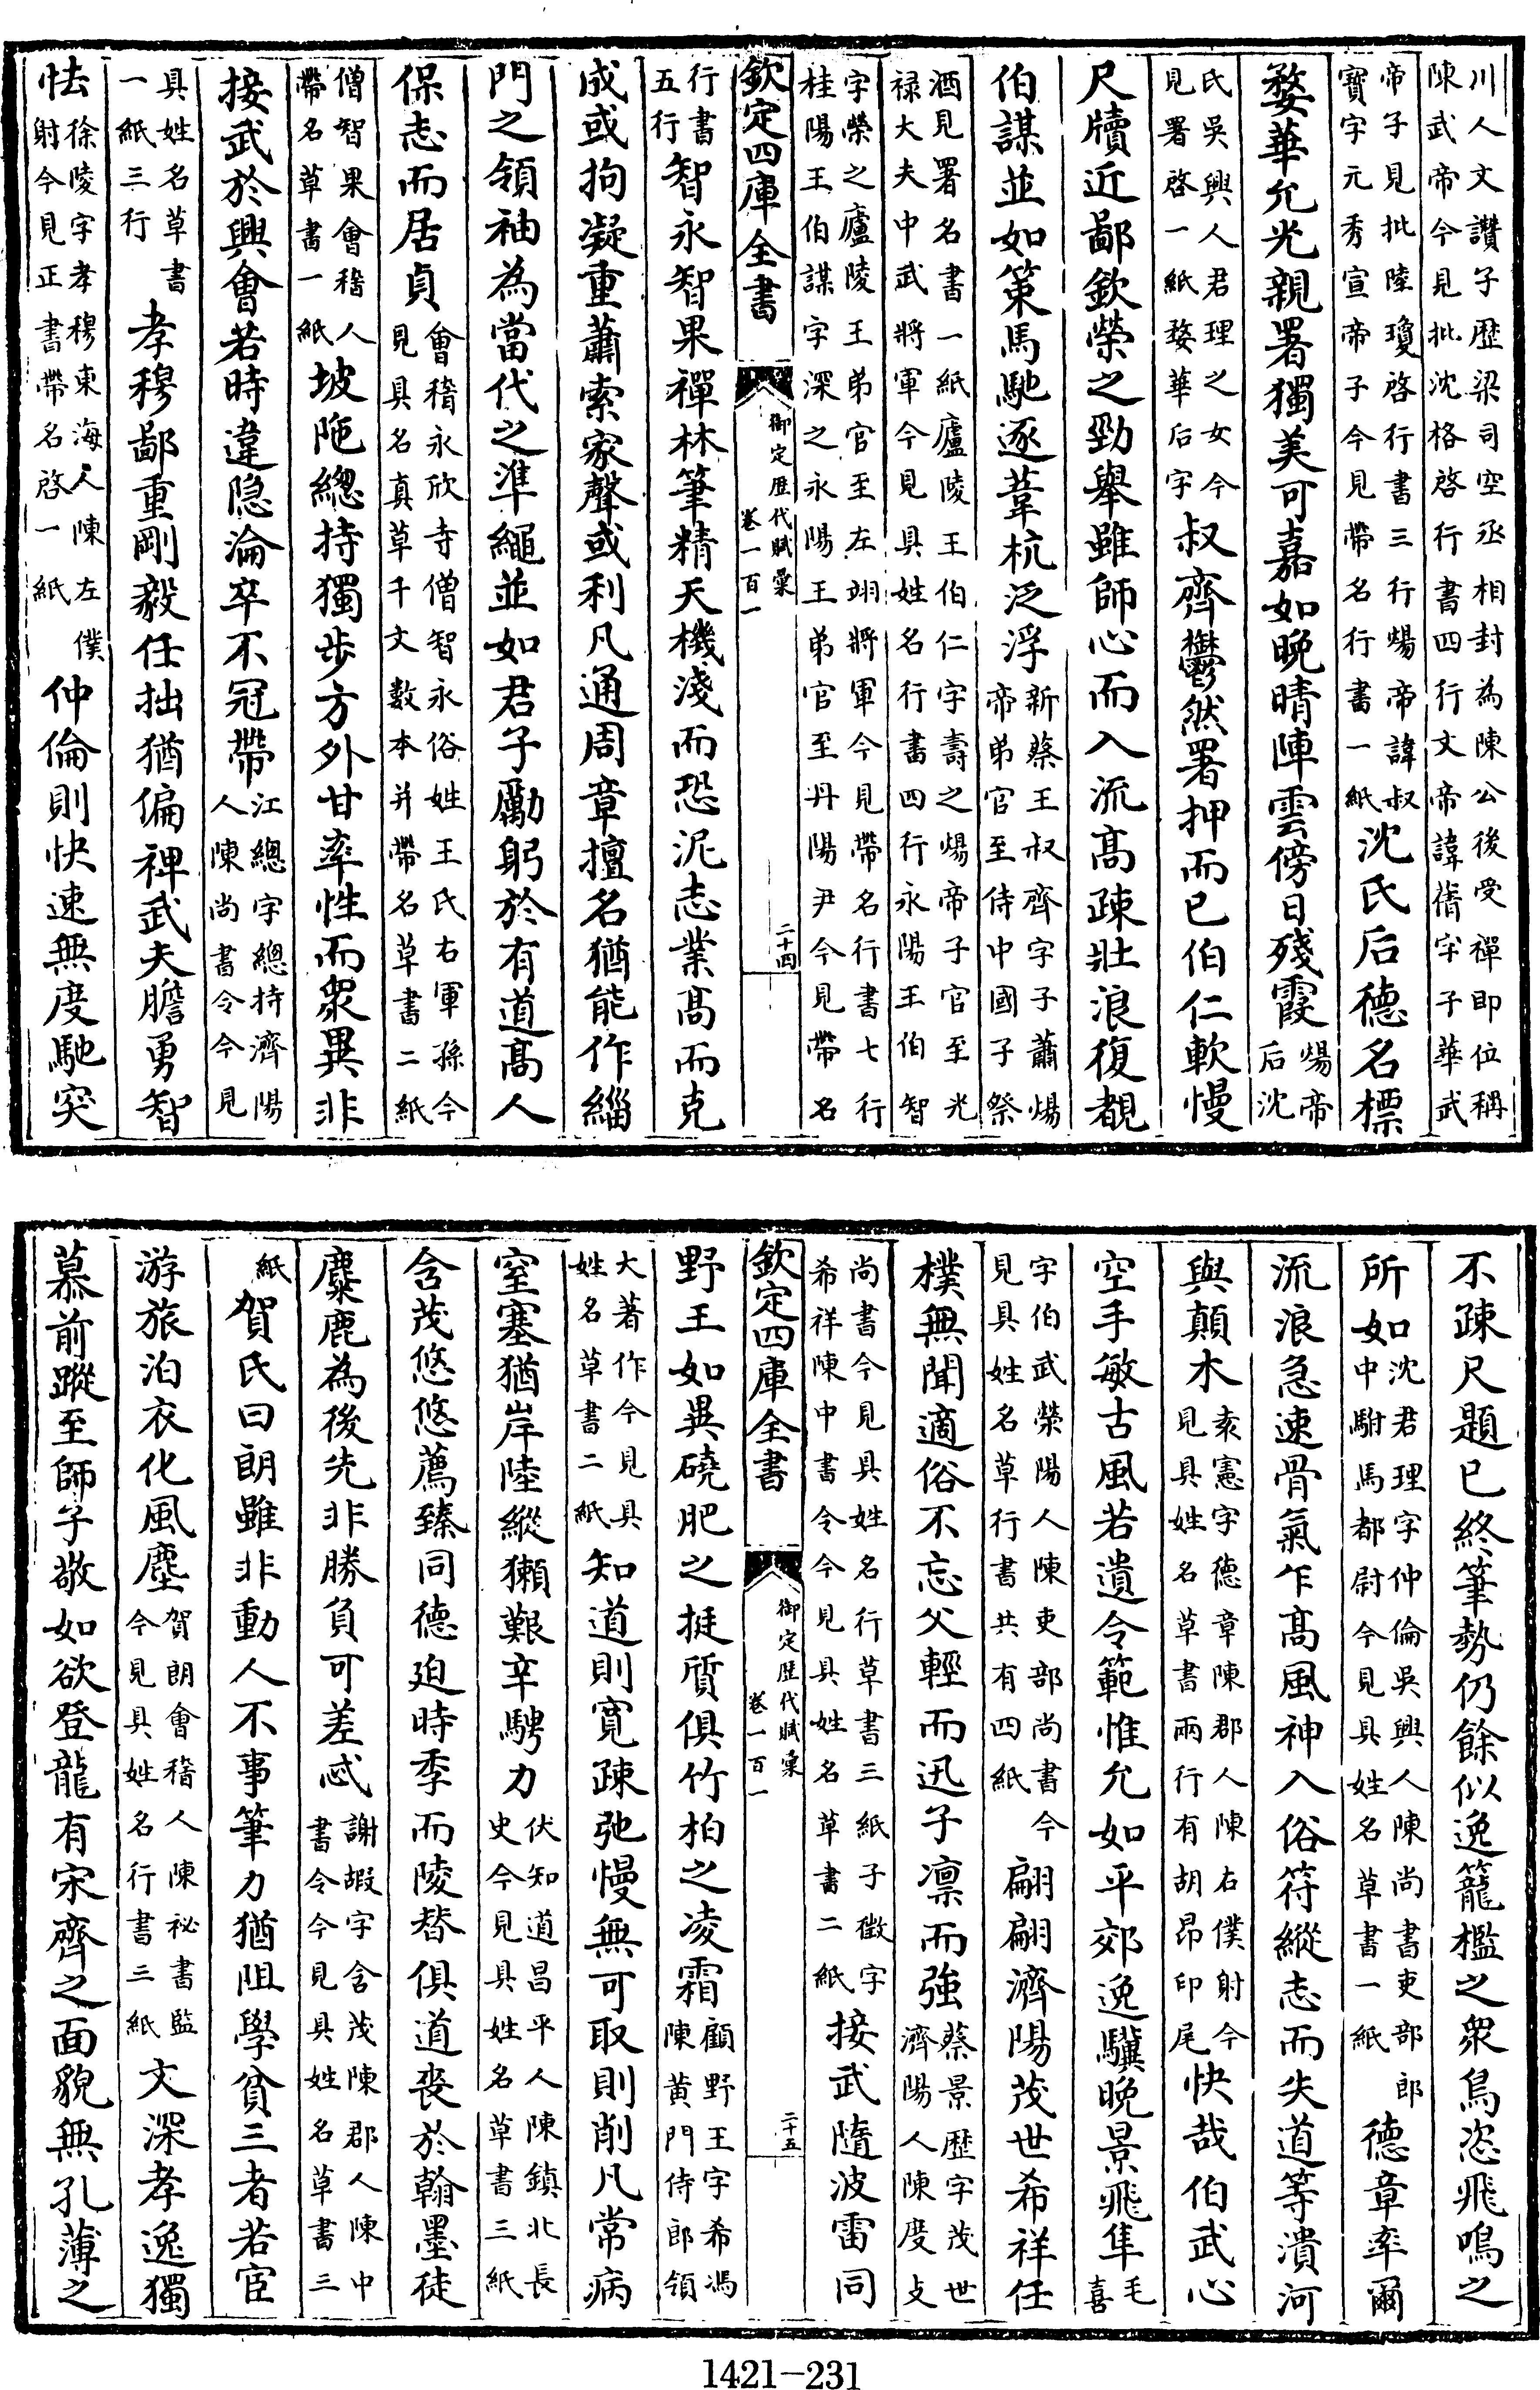 川人文讚子歴梁司空丞相封為陳公後受禪即位稱
陳武帝今見批沈格啓行書四行文帝諱蒨字子華武
帝子見批陸瓊啓行書三行煬帝諱叔
寳字元秀宣帝子今見帶名行書一紙沈氏后德名標
婺華允光親署獨美可嘉如晩晴陣雲傍日殘霞煬帝
后沈
氏吳興人君理之女今
見署啓一紙婺華后字叔齊鬱然署押而已伯仁軟慢
尺牘近鄙欽榮之勁舉雖師心而入流髙疎壯浪復覩
伯謀並如策馬馳逐葦杭泛浮新蔡王叔齊字子蕭煬
帝弟官至侍中國子祭
酒見署名書一紙廬陵王伯仁字壽之煬帝子官至光
禄大夫中武將軍今見具姓名行書四行永陽王伯智
字榮之廬陵王弟官至左翊將軍今見帶名行書七行
桂陽王伯謀字深之永陽王弟官至丹陽尹今見帶名
欽定四庫全書
御定歴代賦彙
卷一百一
二十四
行書
五行智永智果禪林筆精天機淺而恐泥志業髙而克
成或拘凝重蕭索家聲或利凡通周章擅名猶能作緇
門之領袖為當代之準繩並如君子勵躬於有道髙人
保志而居貞會稽永欣寺僧智永俗姓王氏右軍孫今
見具名真草千文数本并帶名草書二紙
僧智果會稽人
帶名草書一紙坡陁總持獨步方外甘率性而衆異非
接武於興會若時違隱淪卒不冠帶江總字總持濟陽
人陳尚書令今見
具姓名草書
一紙三行孝穆鄙重剛毅任拙猶偏裨武夫膽勇智
怯徐陵字孝穆東海人陳左僕
射今見正書帶名啓一紙仲倫則快速無度馳突
不疎尺題已終筆勢仍餘似逸籠檻之衆鳥恣飛鳴之
所如沈君理字仲倫吳興人陳尚書吏部郎
中駙馬都尉今見具姓名草書一紙德章率爾
流浪急速骨氣乍髙風神入俗符縱志而失道等潰河
與顛木袁憲字德章陳郡人陳右僕射今
見具姓名草書兩行有胡昂印尾快哉伯武心
空手敏古風若遺令範惟允如平郊逸驥晩景飛隼毛
喜
字伯武榮陽人陳吏部尚書今
見具姓名草行書共有四紙翩翩濟陽茂世希祥任
樸無聞適俗不忘父輕而迅子凛而強蔡景歴字茂世
濟陽人陳度支
尚書今見具姓名行草書三紙子徵字
希祥陳中書令今見具姓名草書二紙接武隨波雷同
欽定四庫全書
御定歴代賦彙
卷一百一
二十五
野王如異磽肥之挺質俱竹柏之凌霜顧野王字希馮
陳黄門侍郎領
大著作今見具
姓名草書二紙知道則寛疎弛慢無可取則削凡常病
窒塞猶岸陸縱獺艱辛騁力伏知道昌平人陳鎮北長
史今見具姓名草書三紙
含茂悠悠薦臻同德廹時季而陵替俱道䘮於翰墨徒
麋鹿為後先非勝負可差忒謝嘏字含茂陳郡人陳中
書令今見具姓名草書三
紙賀氏曰朗雖非動人不事筆力猶阻學貧三者若宦
游旅泊衣化風塵賀朗會稽人陳祕書監
今見具姓名行書三紙文深孝逸獨
慕前蹤至師子敬如欲登龍有宋齊之面貌無孔薄之
1421-231